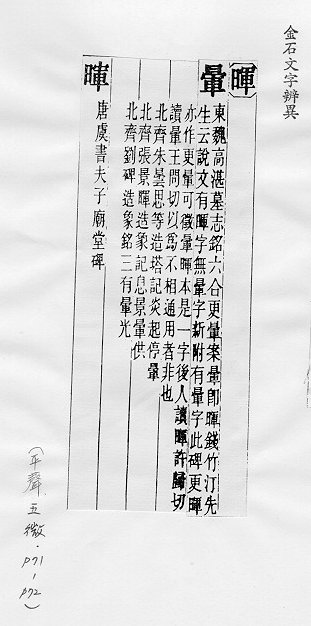 金石文字辨異
暉
暈
東魏高湛墓志銘六合更暈案暈卽暉錢竹汀先
生云說文有暉字無暈字新附有暈字此碑更暉
亦作更暈可徵暈暉本是一字後人讀暉許歸切
讀暈王問切以爲不相通用者非也
北齊朱曇思等造塔記炎起停暈
北齊張景暉造象記息景暈供
北齊劉碑造象銘三有暈光
暉
唐虞書夫子廟堂碑
(平聲五微.P71-P72)